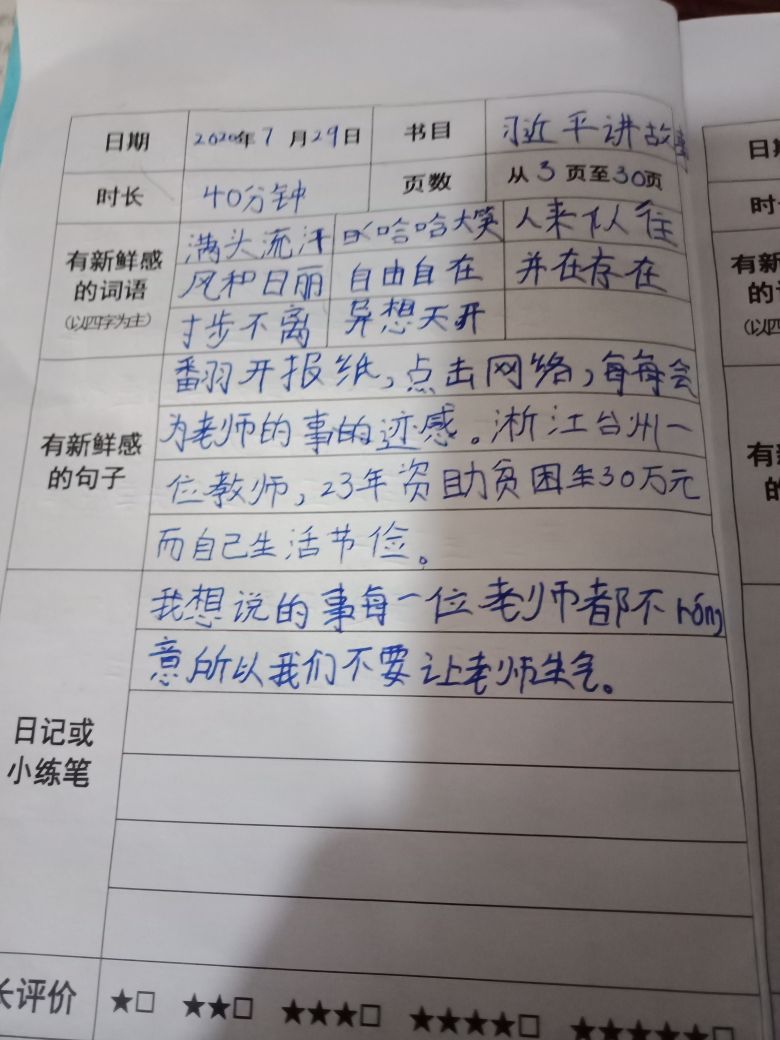 日期 2020年7月29日 书目 习近平讲故事
时长 40分钟 页数 从3页至30页
有新鲜感的词语(以四字为主)
满头流汗 哈哈大笑 人来人往
风和日丽 自由自在 并在存在
寸步不离 异想天开
有新鲜感的句子
翻开报纸,点击网络,每每会
为老师的事的迹感。浙江台州一
位教师,23年资助贫困生30万元
而自己生活节俭。
日记或小练笔
我想说的事每一位老师都不róng
意所以我们不要让老师生气。
长评价 ★□ ★★□ ★★★□ ★★★★□ ★★★★★□
日
时
有新
的
(以四
有新
的